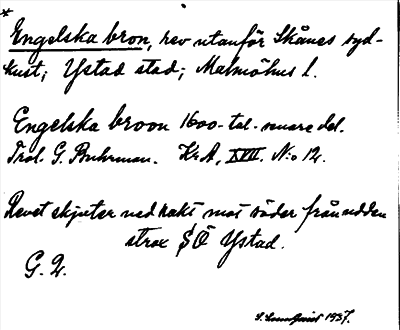 *
Engelska bron, rev utanför Skånes syd-
kust; Ystad stad; Malmöhus l.
Engelska broon 1600-tal. senare del.
Trol. G. Buhrman. Kr A, XVII. N:o 12.
Revet skjuter ned rakt mot söder från udden
strax SÖ Ystad.
G. 2.
1937.